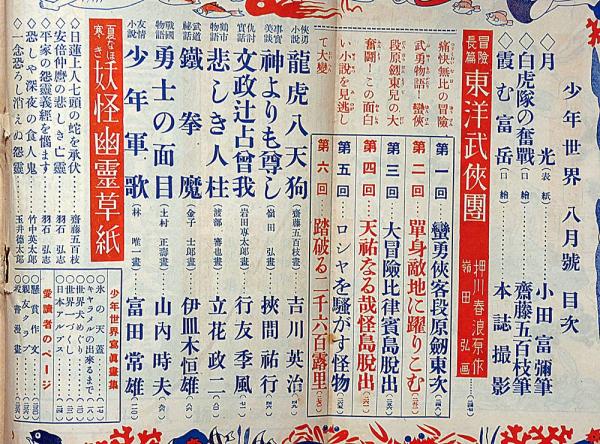 少年世界 八月號 目次
◇月光(表紙)…小田富彌筆
◇白虎隊の奮戰(口繪)…齋藤五百枝筆
◇霞む富岳(口繪)…本誌撮影
冒險長篇 東洋武俠團 押川春浪原作 嶺田弘画
痛快無比の冒險
武勇物語！蠻俠
段原劔東兒の大
奮鬪！この面白
い小説を見逃し
て大變
第一回 蠻勇俠客段原劔東次
第二回 單身敵地に躍りこむ
第三回 大冒險比律賓島脱出
第四回 天祐なる哉怪島脱出
第五回 ロシヤを騒がす怪物
第六回 踏破る二千六百露里
俠勇小説 龍虎八天狗(齋藤五百枝畫)…吉川英治
事實美談 神よりも尊し(嶺田弘畫)…挾間祐行
仇討事實 文政辻占曾我(岩田専太郎畫)…行友李風
鶴市物語 悲しき人柱(渡部審也畫)…立花政二
武道秘話 鐵拳魔(金子士郎畫)…伊皿木恒雄
戰國物語 勇士の面目(土村正壽畫)…山内時夫
友情小説 少年軍歌(林唯一畫)…富田常雄
夏なほ寒き 妖怪幽靈草紙
◇日蓮上人七頭の蛇を承伏…齋藤五百枝
◇安倍仲麿の悲しき亡靈…羽石弘志
◇平家の怨靈義經を惱ます…羽石弘志
◇恐しや深夜の食人鬼…竹中英太郎
◇一念恐ろし消えぬ怨靈…玉井徳太郎
少年世界寫眞畫集
◇氷の天蓋
◇キャラメルの出來るまで
◇世界犬めぐり
◇世界一づくし
◇日本アルプス
愛讀者のページ
◇懸賞作文
◇親友クラブ
◇教育漫畫